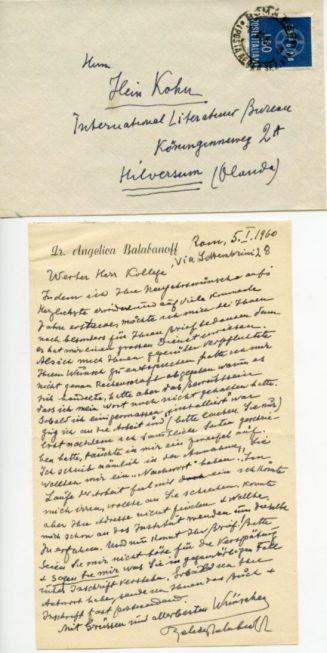 Herrn
Hein Kohn
International Literatuur Bureau
Koninginneweg 2A
Hilversum (Olanda)
ROMA
POSTE ITALIANE
L. 60
Dr. Angelica Balabanoff
Rom, 5. I. 1960
Via 8
Werter Herr Kollege,
Indem ich Ihre Neujahrswünsche aufs
Herzlichste erwidere und auf viele kommende
Jahre erstrecke, möchte ich mir bei Ihnen
noch besonders für Ihren Brief bedanken denn
er hat mir einen grossen Dienst erwiesen.
Als ich mich Ihnen gegenüber verpflichtete
Ihrem Wunsch zu entsprechen hatte ich mir
nicht genau Rechenschaft abgegeben worum es
sich handelte, hatte aber das Bewusstsein
dass ich mein Wort noch nicht gehalten hatte.
Sobald ich einigermassen installiert war
ging ich an die Arbeit und (bitte lachen Sie nicht)
erst nachdem ich Seiten geschrie-
ben hatte, tauchte in mir ein Zweifel auf.
Ich schrieb nämlich in der Annahme, Sie
wollten mir ein "Nachwort" haben. Im
Laufe der Arbeit fiel mir ein ich könnte
mich irren, wollte an Sie schreiben, konnte
aber Ihre Adresse nicht finden & wollte
mich schon an das Institut wenden um dieselbe
zu erfahren. Und nun kommt Ihr Brief. Bitte
seien Sie mir nicht böse für die Verspätung
& sagen Sie mir was Sie im gegenwärtigen Fall
unter Inschrift verstehen. Sobald ich Ihre
Antwort habe, sende ich Ihnen das Buch &
Inschrift fast postwendend.
Mit Grüssen und allerbesten Wünschen
Angelica Balabanoff